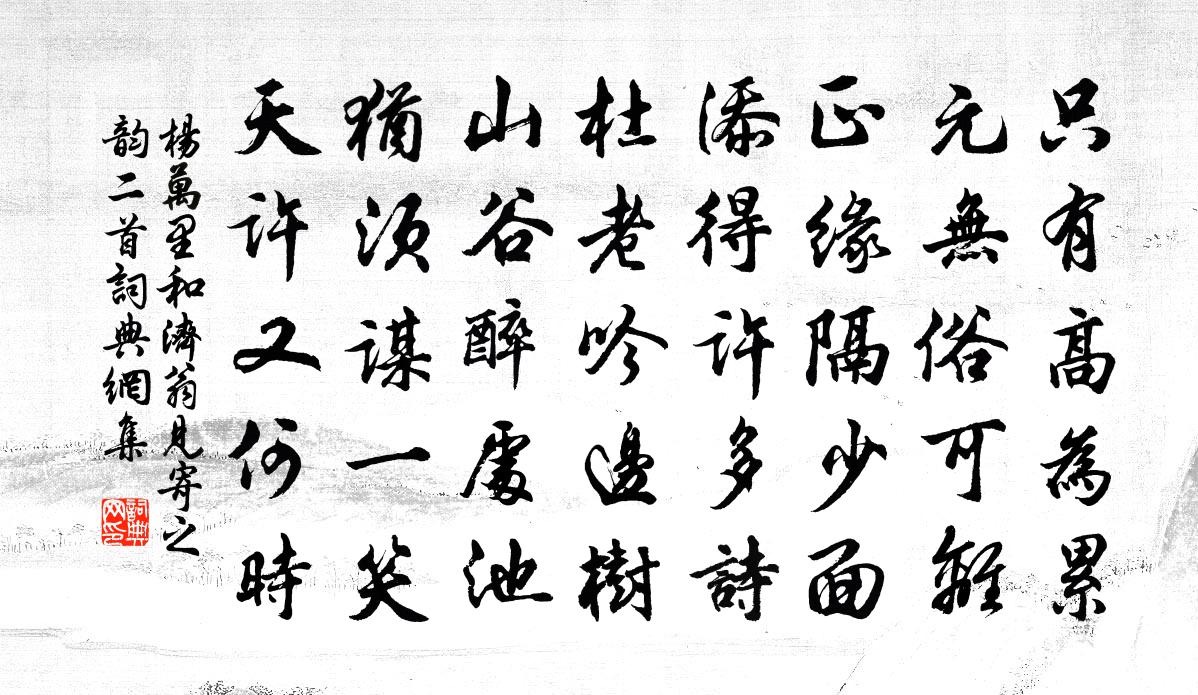 只有高為累
元無俗可離
正緣隔少面
添得許多詩
杜老吟邊樹
山谷醉處池
猶須謀一笑
天許又何時
楊萬里和濟翁見寄之
韵二首詞典網集
詞典
网印